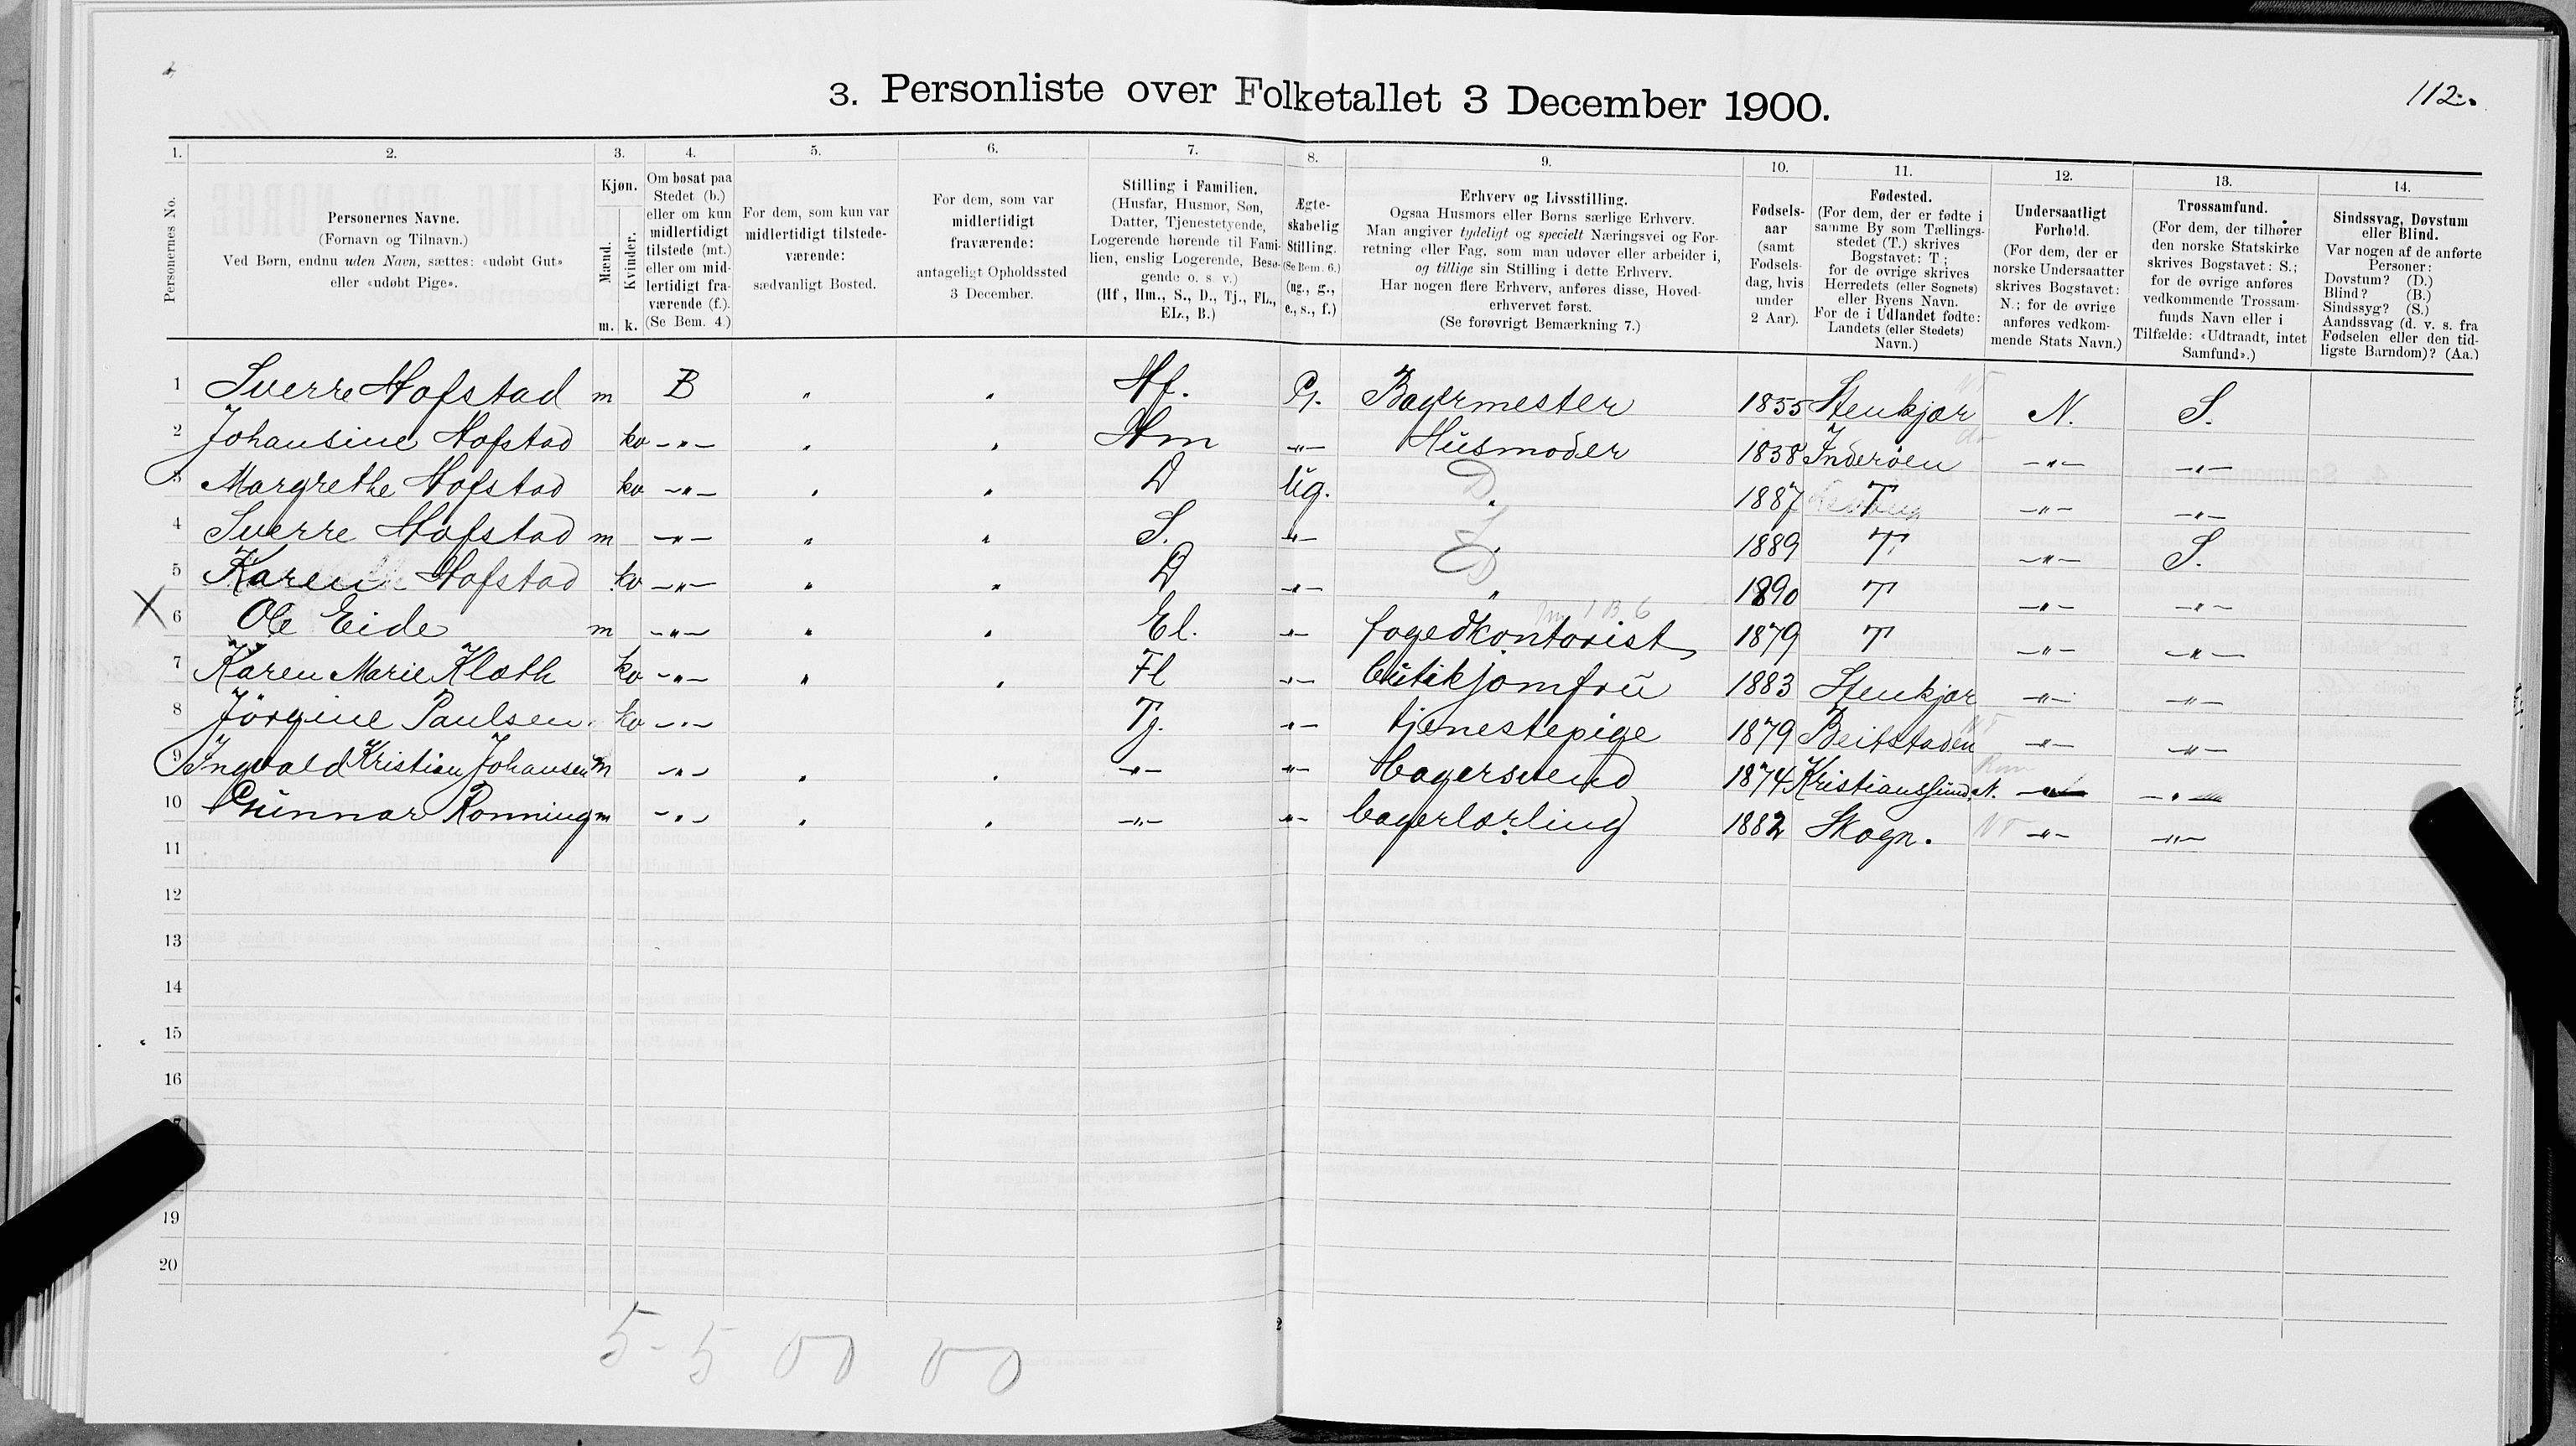 112.
3. Personliste over Folketallet 3 December 1900.
1. 2. 3. 4. 5. 6. 7. 8. 9. 10. 11. 12. 13. 14.
Personernes No.
Personernes Navne.
(Fornavn og Tilnavn.)
Ved Børn, endnu uden Navn, sættes: «udøbt Gut»
eller «udøbt Pige».
Kjøn.
Mænd.
Kvinder.
m. k.
Om bosat paa
Stedet (b.)
eller om kun
midlertidigt
tilstede (mt.)
eller om mid-
lertidigt fra-
værende (f.).
(Se Bem. 4.)
For dem, som kun var
midlertidigt tilstede-
værende:
sædvanligt Bosted.
For dem, som var
midlertidigt
fraværende:
antageligt Opholdssted
3 December.
Stilling i Familien.
(Husfar, Husmor, Søn,
Datter, Tjenestetyende,
Logerende hørende til Fami-
lien, enslig Logerende, Besø-
gende o. s. v.)
(Hf., Hm., S., D., Tj., FL.,
EL., B.)
Ægte-
skabelig
Stilling.
(Se Bem. 6.)
(ug., g.,
e., s., f.)
Erhverv og Livsstilling.
Ogsaa Husmors eller Børns særlige Erhverv.
Man angiver tydeligt og specielt Næringsvei og For-
retning eller Fag, som man udøver eller arbeider i,
og tillige sin Stilling i dette Erhverv.
Har nogen flere Erhverv, anføres disse, Hoved-
erhvervet først.
(Se forøvrigt Bemærkning 7.)
Fødsels-
aar
(samt
Fødsels-
dag, hvis
under
2 Aar).
Fødested.
(For dem, der er fødte i
samme By som Tællings-
stedet (T.) skrives
Bogstavet: T;
for de øvrige skrives
Herredets (eller Sognets)
eller Byens Navn.
For de i Udlandet fødte:
Landets (eller Stedets)
Navn.)
Undersaatligt
Forhold.
(For dem, der er
norske Undersaatter
skrives Bogstavet:
N.; for de øvrige
anføres vedkom-
mende Stats Navn.)
Trossamfund.
(For dem, der tilhører
den norske Statskirke
skrives Bogstavet: S.;
for de øvrige anføres
vedkommende Trossam-
funds Navn eller i
Tilfælde: «Udtraadt, intet
Samfund».)
Sindssvag, Døvstum
eller Blind.
Var nogen af de anførte
Personer:
Døvstum? (D.)
Blind? (B.)
Sindssyg? (S.)
Aandssvag (d. v. s. fra
Fødselen eller den tid-
ligste Barndom)? (Aa.)
1 Sverre Hofstad m B " " Hf. G. Bagermester 1855 Stenkjær N. S.
2 Johansine Hofstad kv -"- " " Hm -"- Husmoder 1838 Inderøen -"- -"-
3 Margrethe Hofstad kv -"- " " D Ug. D " 1887 T -"- -"-
4 Sverre Hofstad m -"- " " S. -"- S " 1889 T -"- S.
5 Karen Hofstad kv -"- " " D -"- D " 1890 T -"- -"-
X 6 Ole Eide m -"- " " El. -"- fogedkontorist 1879 T -"- -"-
7 Karen Marie Kloth kv -"- " " Fl -"- butikjomfru 1883 Stenkjær -"- -"-
8 Jörgine Paulsen kv -"- Tj. -"- tjenestepige 1879 Beitstaden -"- -"-
9 Ingvald Kristian Johansen m -"- " " -"- -"- bagersvend 1874 Kristianssund N. -"- -"-
10 Gunnar Ronning m -"- " " -"- -"- bagerlærling 1882 Skogn. -"- -"-
11
12
13
14
15
16
19
20
5 - 5 00 00